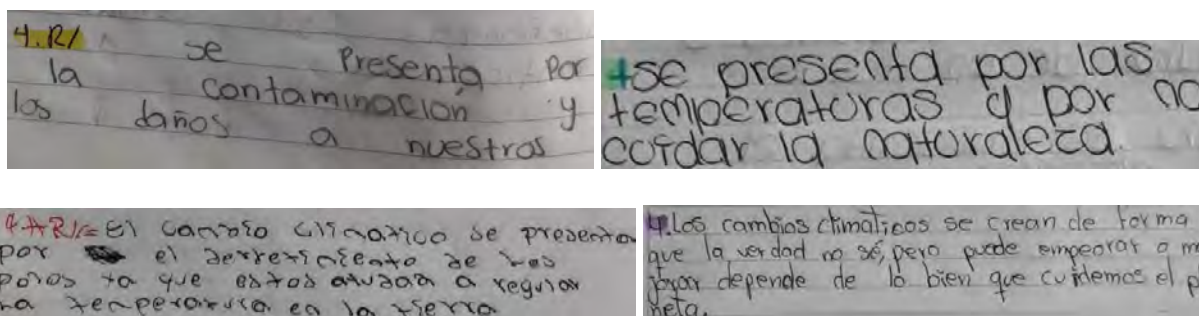 4. R/ se Presenta Por
la contaminación y
los daños a nuestros
+se presenta por las
temperaturas y por no
coidar la natoraleza.
4.+R//= El cambio climatico se presenta
por el derretimiento de los
polos ya que estos ayudan a regular
la temperatura en la tierra
4.Los cambios climaticos se crean de forma
que la verdad no sé, pero puede empeorar o me
jorar depende de lo bien que cuidemos el p
neta.